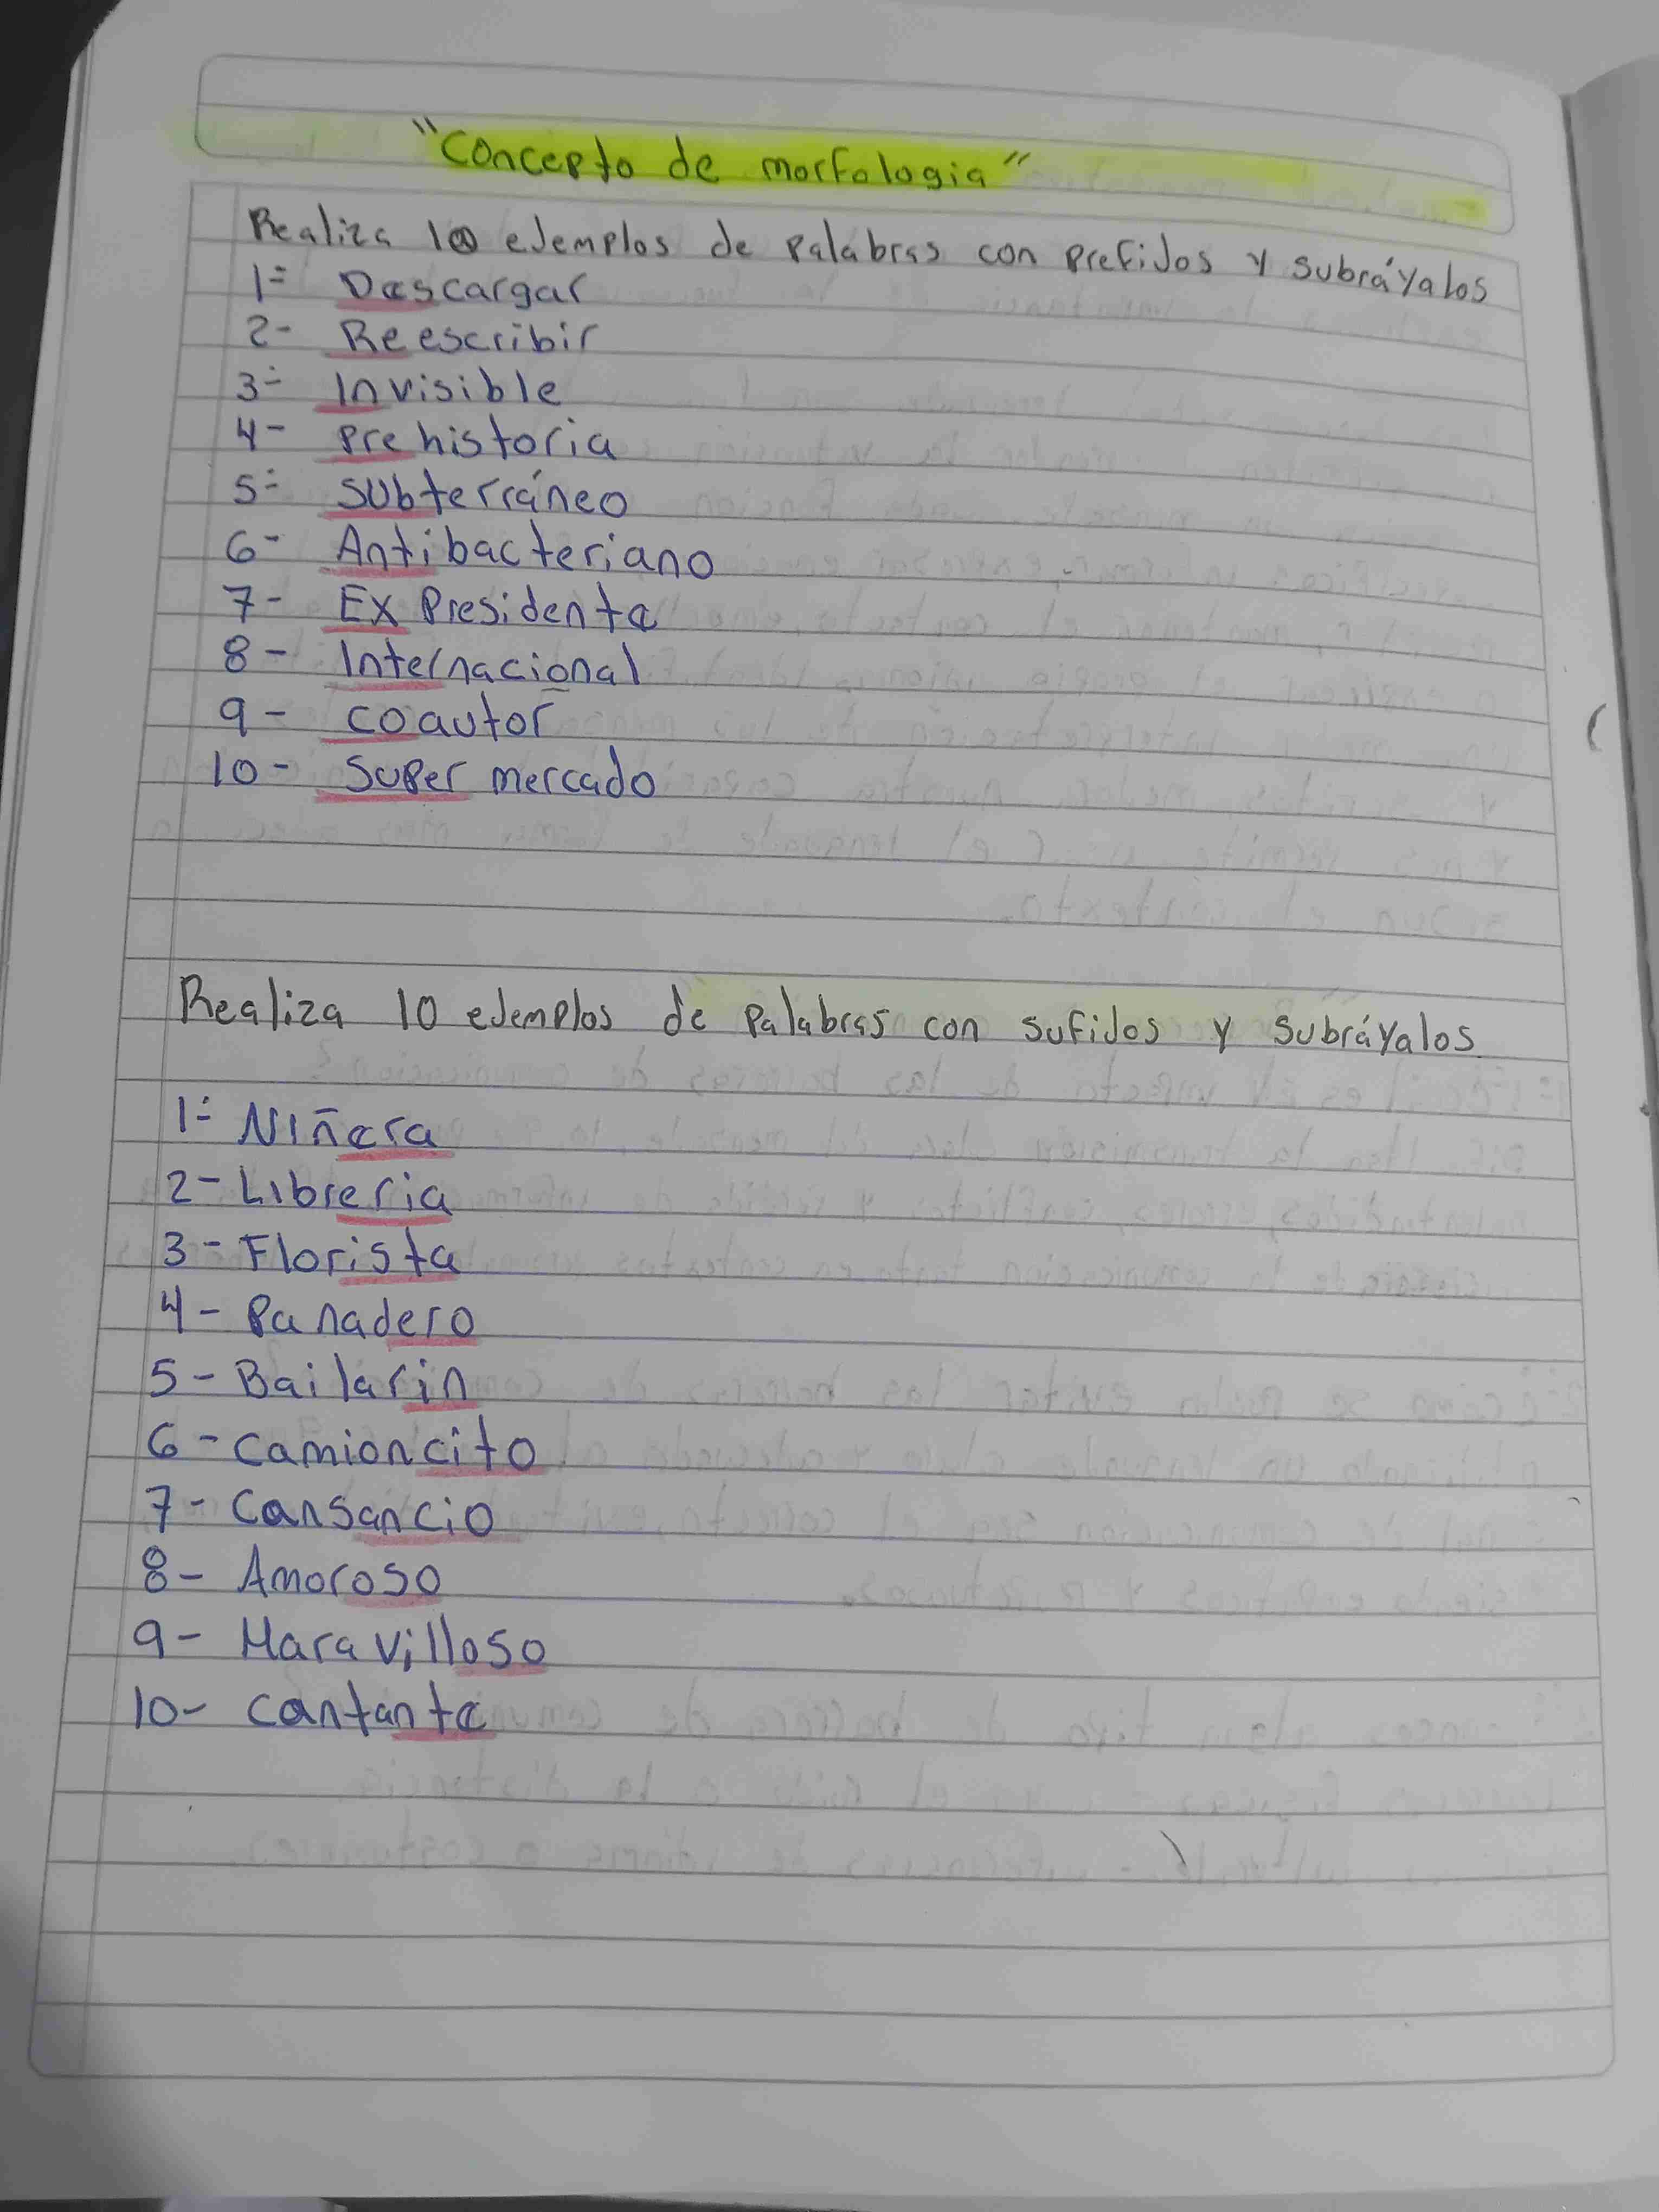 "Concepto de morfologia"
Realiza 10 ejemplos de palabras con prefijos y subráyalos
1- Descargar
2- Reescribir
3- Invisible
4- Prehistoria
5- Subterráneo
6- Antibacteriano
7- Ex Presidenta
8- Internacional
9- coautor
10- Super mercado
Realiza 10 ejemplos de palabras con sufijos y subráyalos
1- Niñera
2- Libreria
3- Florista
4- Panadero
5- Bailarin
6- camioncito
7- Cansancio
8- Amoroso
9- Maravilloso
10- cantante